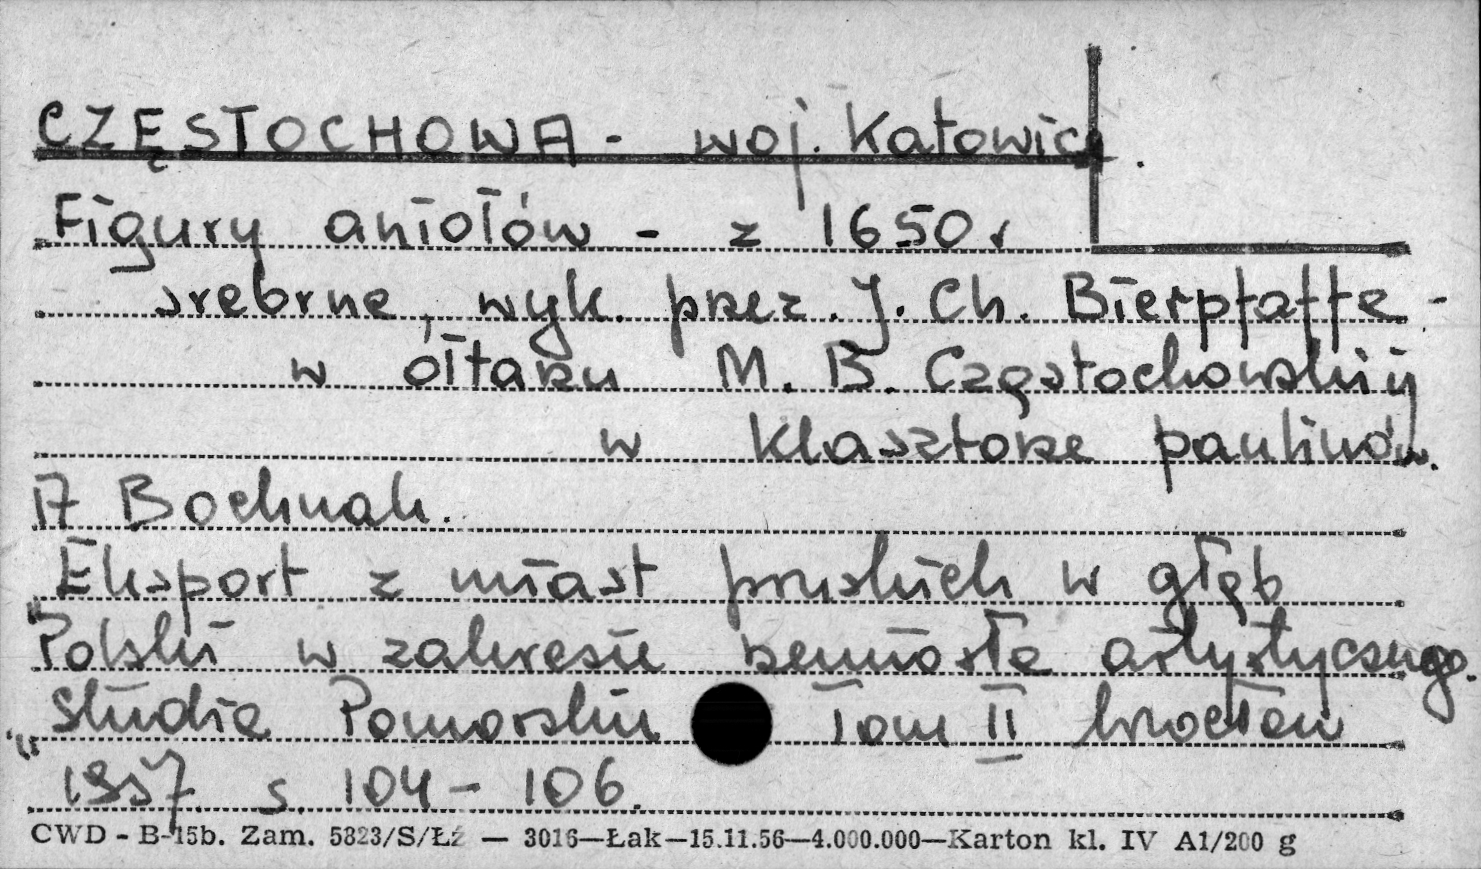 CZĘSTOCHOWA - woj. Katowice.
Figury aniołów - z 1650 r
srebrne, wyk. przez. J. Ch. Bierpfaffa -
w ołtarzu M. B. Częstochowskiej
w klasztorze paulinów.
A Bochnak.
Eksport z miast pruskich w głąb
Polski w zakresie rzemiosła artystycznego.
"Studia Pomorskie" Tom II Wrocław
1957. s. 104 - 106.
CWD - B-15b. Zam. 5823/S/Łź — 3016—Łak—15.11.56—4.000.000—Karton kl. IV A1/200 g